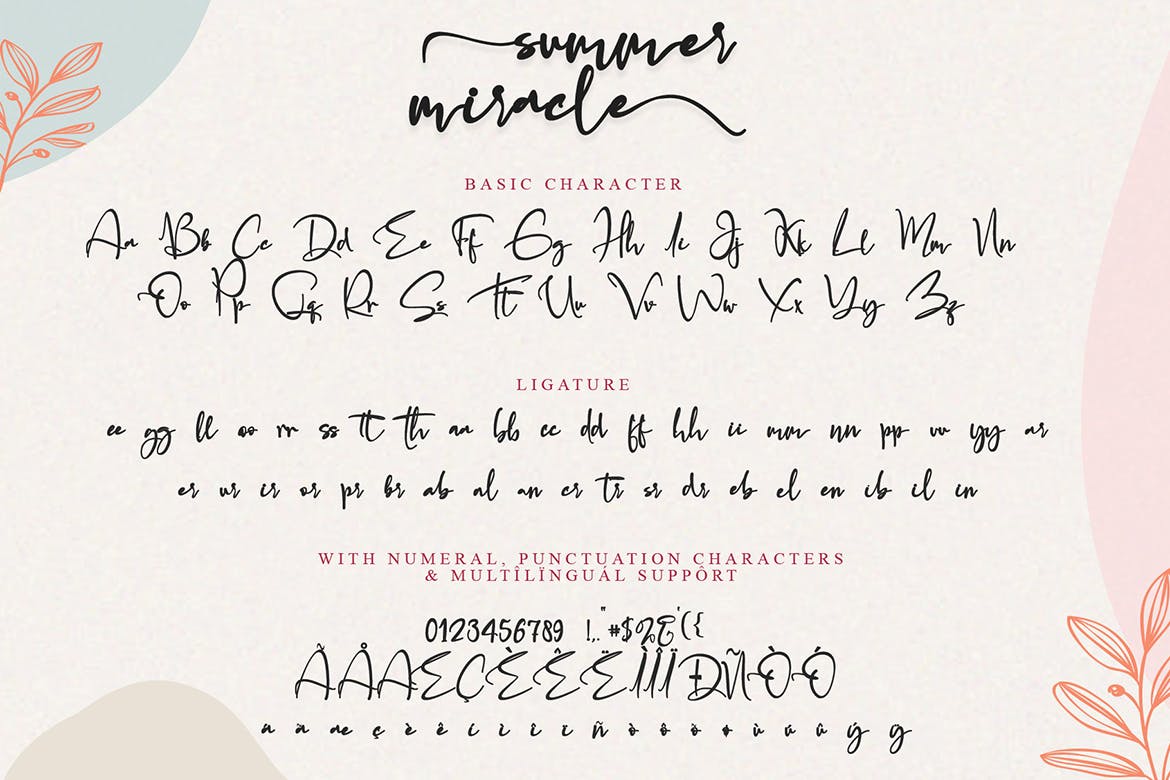 summer
miracle
BASIC CHARACTER
Aa Bb Cc Dd Ee Ff Gg Hh Ii Jj Kk Ll Mm Nn
Oo Pp Qq Rr Ss Tt Uu Vv Ww Xx Yy Zz
LIGATURE
ee gg ll oo rr ss tt th aa bb cc dd ff hh ii mm nn pp uu yy ar
er ur ir or pr br ab al an cr tr sr dr eb el en ib il in
WITH NUMERAL, PUNCTUATION CHARACTERS
& MULTÎLÏNGUÁL SUPPÔRT
0123456789 !,."#$%&'({
ÃÅÆÇÈÊËÌÎÏÐÑÒÓ
æ ç è ê ì î ï ñ ò ô õ ù ú û ý